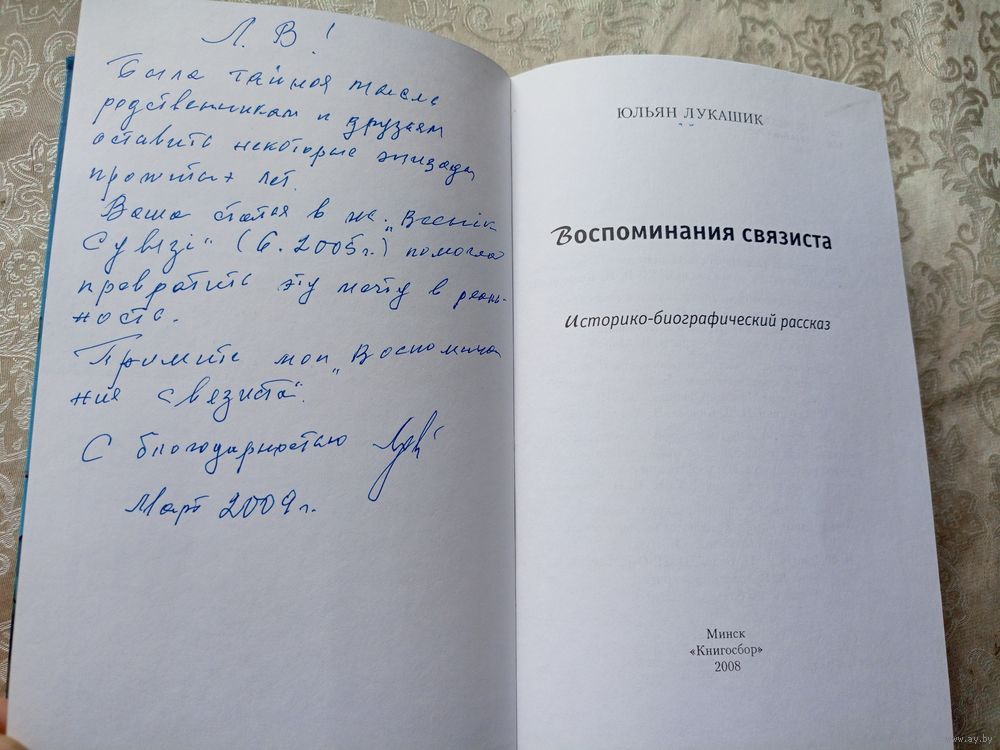 Л. В!
Была тайная мысль
родственникам и друзьям
оставить некоторые эпизоды
прожитых лет.
Ваша статья в ж. „Веснік
Сувязі“ (6. 2005г.) помогла
превратить эту мечту в реаль-
ность.
Примите мои „Воспомина
ния связиста“.
С благодарностью
Март 2009 г.
ЮЛЬЯН ЛУКАШИК
Воспоминания связиста
Историко-биографический рассказ
Минск
«Книгосбор»
2008
www.ay.by